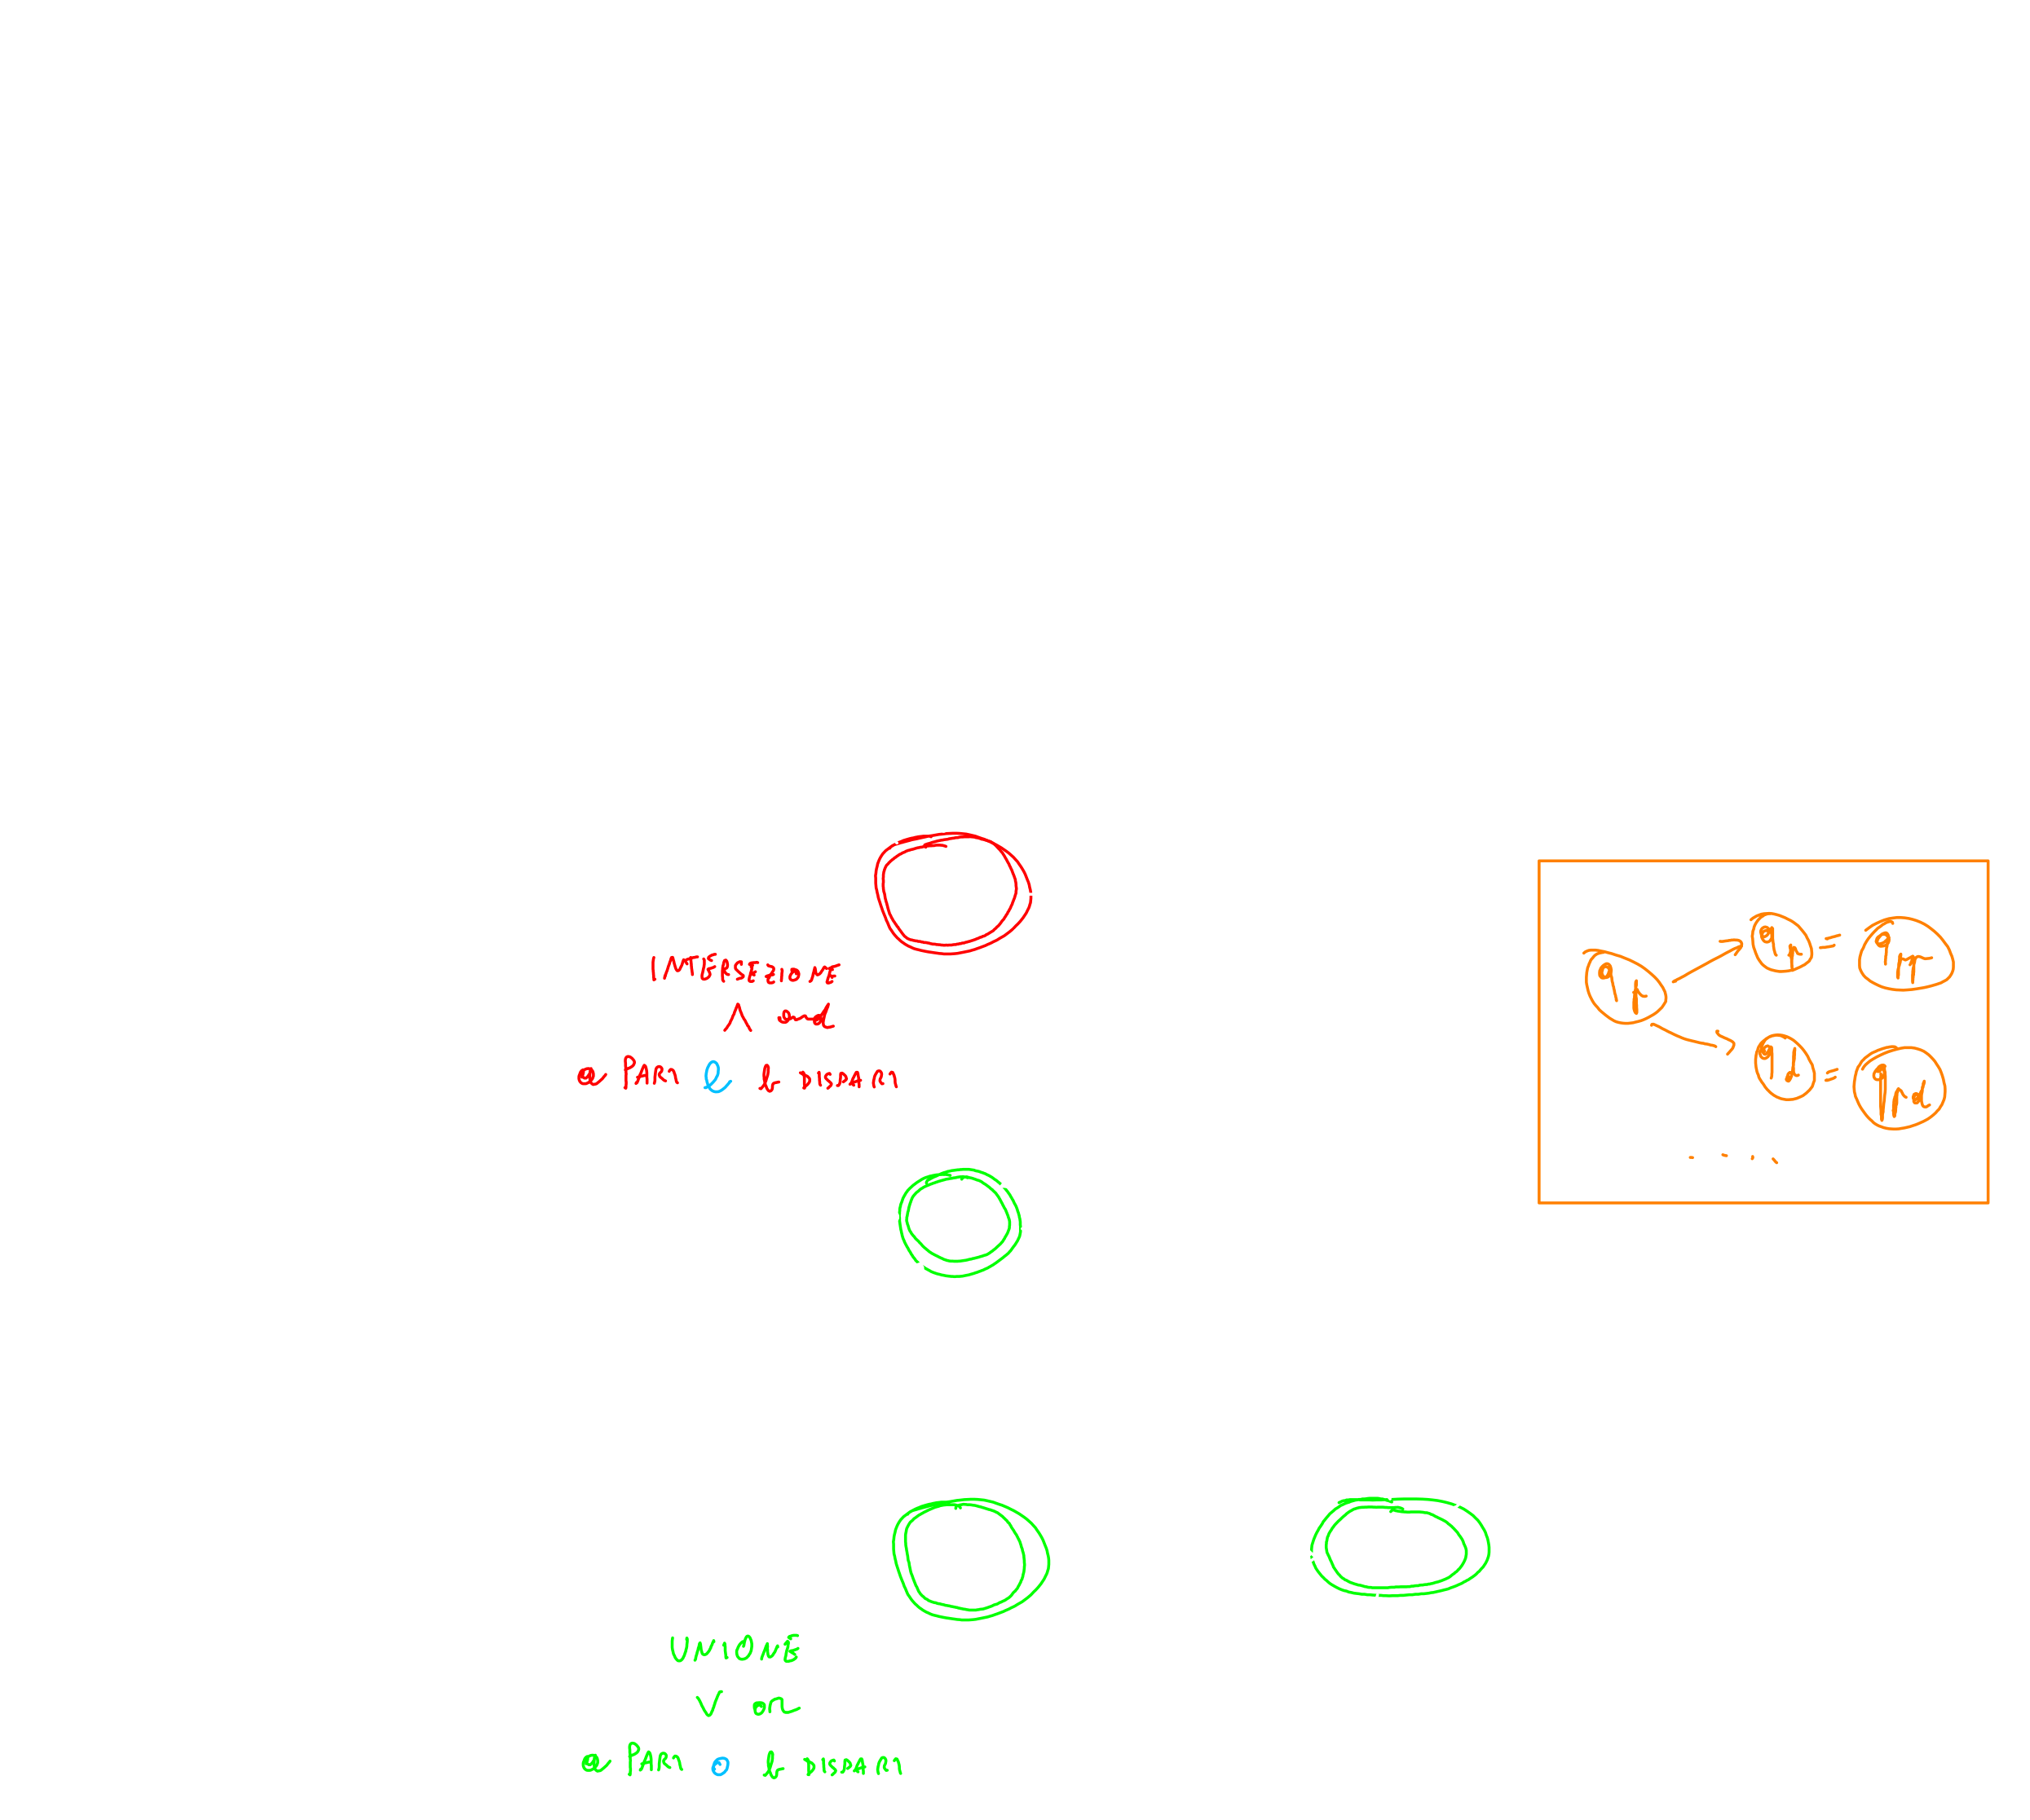 INTERSEZIONE
∧ and
a PARI e b DISPARI
qp
qp = qpp
qd = qpd
....
UNIONE
∨ or
a PARI o b DISPARI